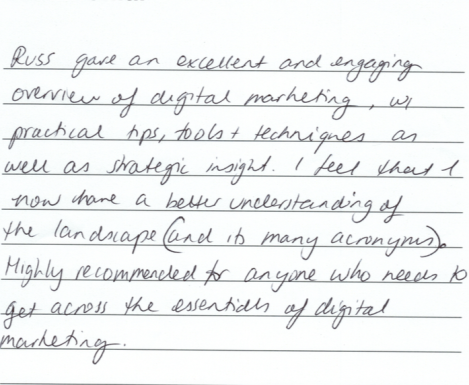 Russ gave an excellent and engaging
overview of digital marketing, w/
practical tips, tools + techniques as
well as strategic insight. I feel that I
now have a better understanding of
the landscape (and its many acronyms).
Highly recommended for anyone who needs to
get across the essentials of digital
marketing.